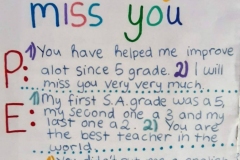 miss you
P: 1) You have helped me improve
alot since 5 grade. 2) I will
miss you very very much.
E: 1) My first S.A. grade was a 5,
my second one a 3 and my
last one a 2. 2) You are
the best teacher in the
world.